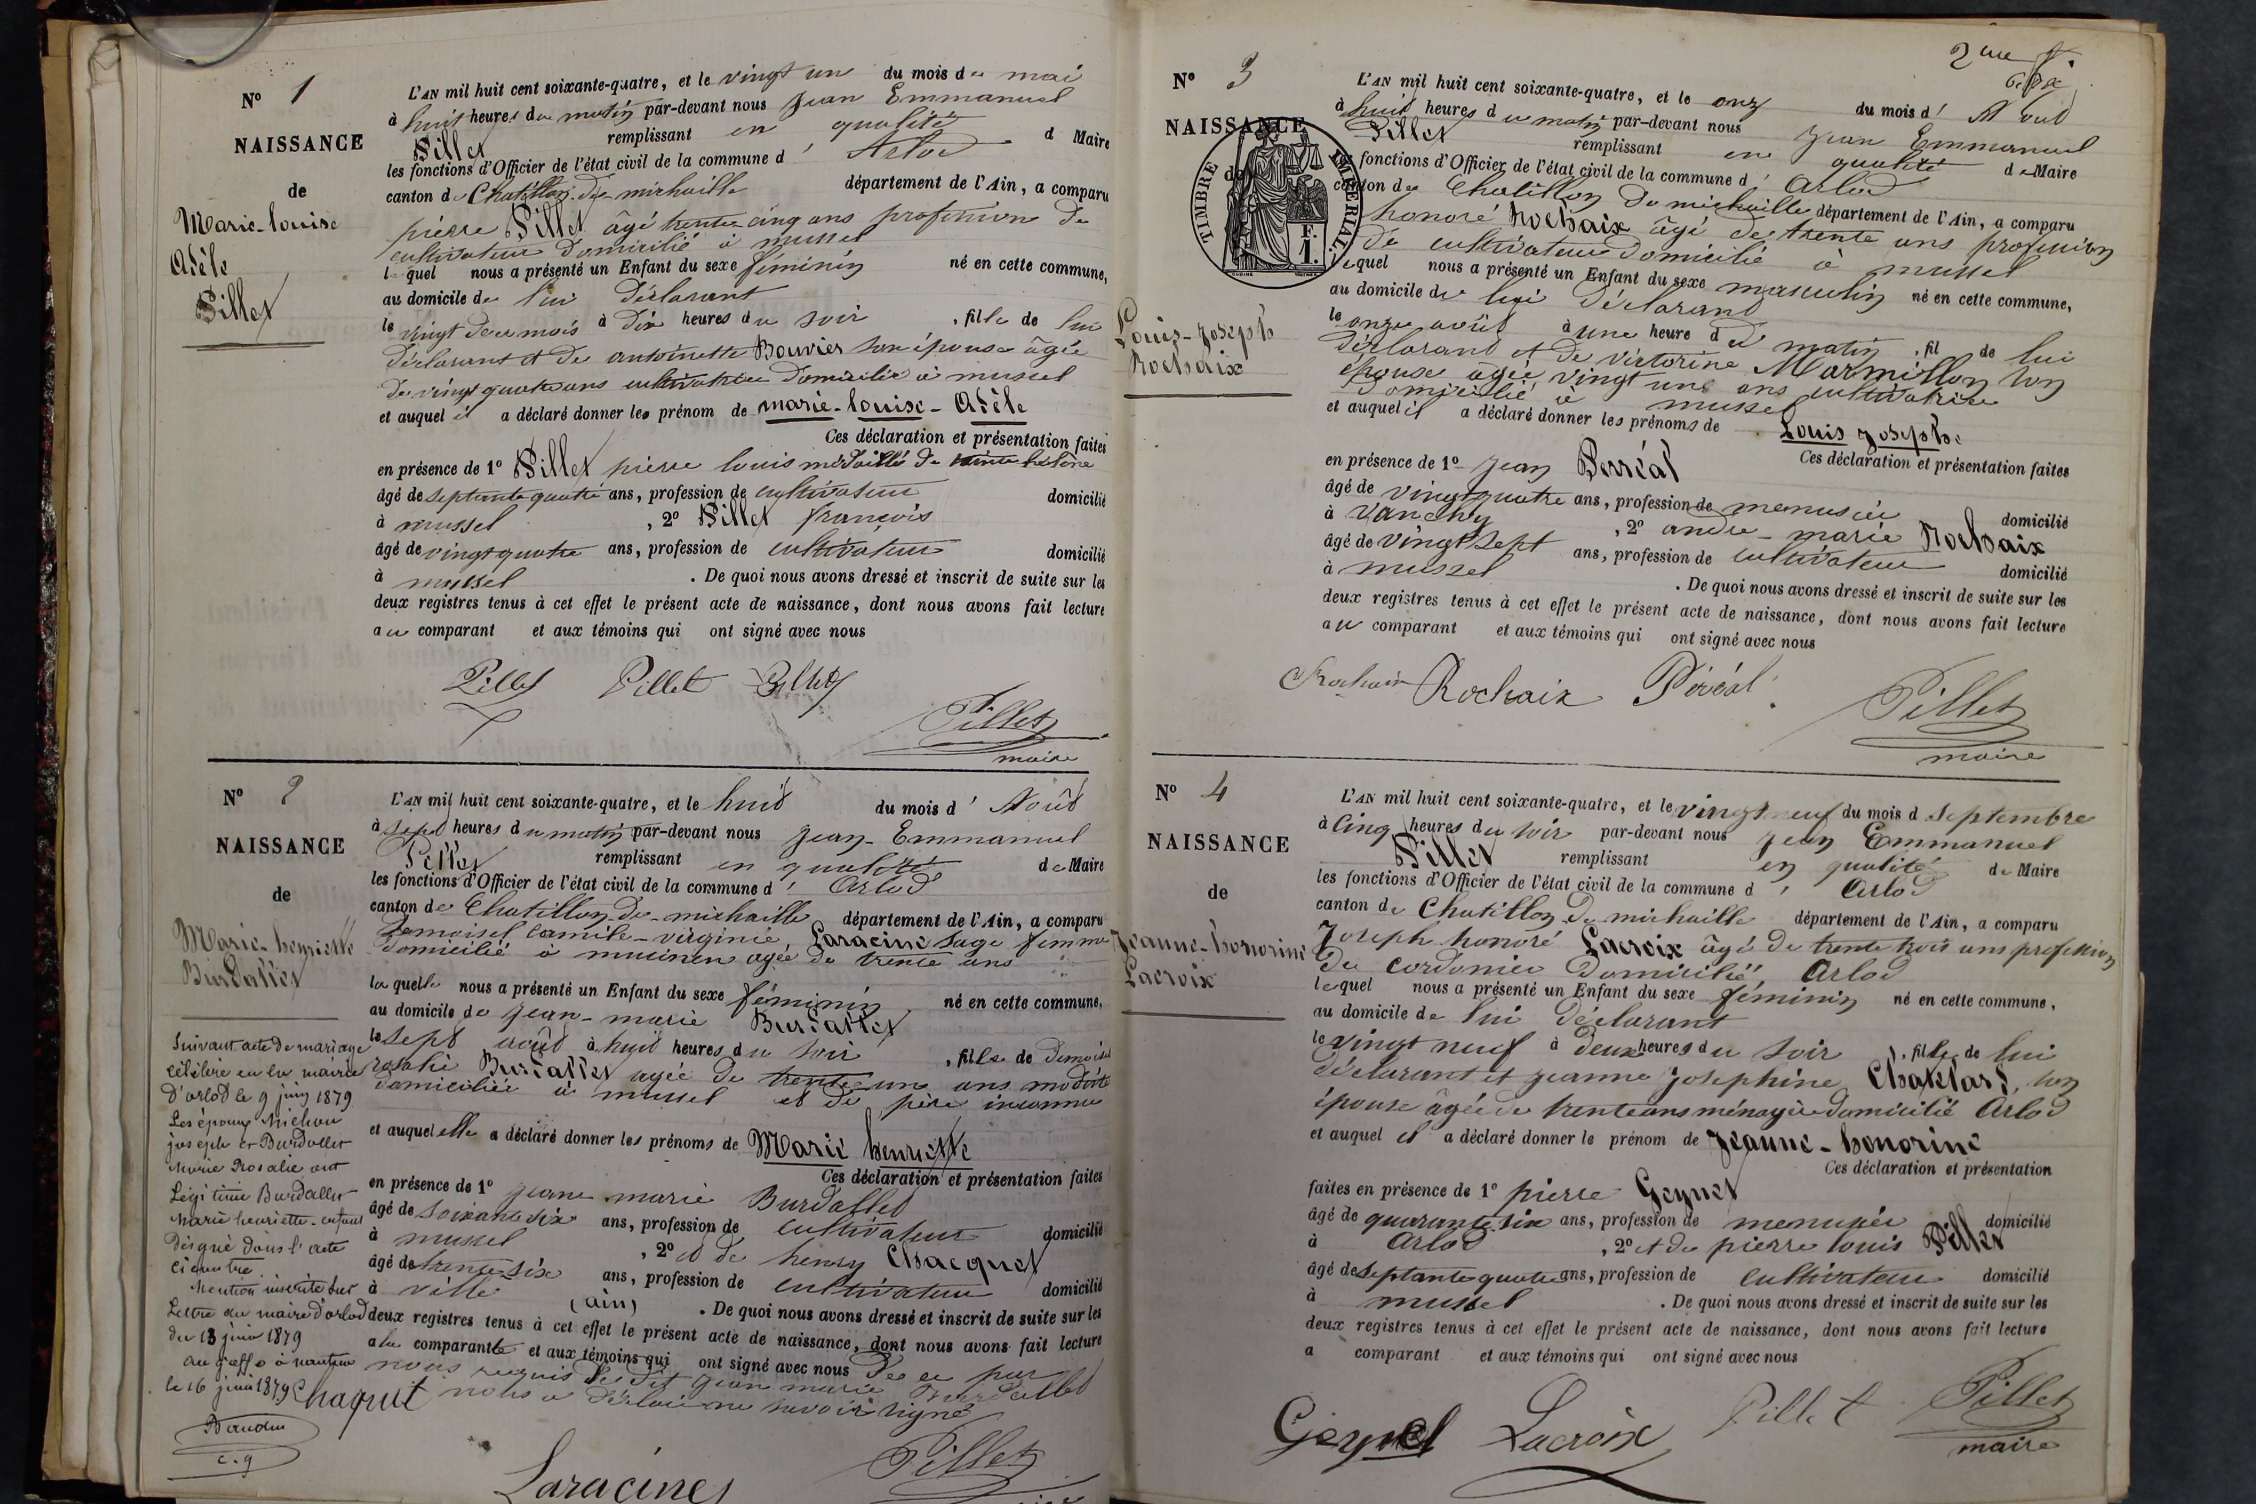 N° 1
NAISSANCE
de
Marie-louise
Adèle
Pillet
L'AN mil huit cent soixante-quatre, et le vingt un du mois de mai
à huit heures du matin par-devant nous Jean Emmanuel
Pillet remplissant en qualité d Maire
les fonctions d'Officier de l'état civil de la commune d' Arlod
canton de Chatillon-de-michaille département de l'Ain, a comparu
pierre Pillet âgé trente-cinq ans profession de
cultivateur domicilié à mussel
lequel nous a présenté un Enfant du sexe féminin né en cette commune,
au domicile de lui déclarant
le vingt du mois à dix heures du soir , fille de lui
déclarant et de antoinette Bouvier son épouse âgée
de vingt quatre ans cultivatrice domicilié à mussel
et auquel il a déclaré donner les prénom de marie-louise-Adèle
Ces déclaration et présentation faites
en présence de 1° Pillet pierre louis médaillé de sainte hélène
âgé de septante quatre ans, profession de cultivateur domicilié
à mussel , 2° Pillet françois
âgé de vingt quatre ans, profession de cultivateur domicilié
à mussel . De quoi nous avons dressé et inscrit de suite sur les
deux registres tenus à cet effet le présent acte de naissance, dont nous avons fait lecture
au comparant et aux témoins qui ont signé avec nous
Pillet Pillet Pillet
Pillet
maire
N° 2
NAISSANCE
de
Marie-henriette
Burdallet
Suivant acte de mariage
célébré en la mairie
d'arlod le 9 juin 1879
Les époux Michou
joseph et Burdallet
Marie Rosalie ont
Légitimé Burdallet
Marie henriette enfant
Désigné dans l'acte
ci contre
Mention inscrite sur
Lettre du maire d'arlod
du 13 juin 1879
au greffe à nantua
le 16 juin 1879
c.g
L'AN mil huit cent soixante-quatre, et le huit du mois d' Août
à sept heures du matin par-devant nous Jean-Emmanuel
Pillet remplissant en qualité de Maire
les fonctions d'Officier de l'état civil de la commune d' Arlod
canton de Chatillon-de-michaille département de l'Ain, a comparu
Demoisel camile-virginie, Laracine sage femme
domicilié à musinen agée de trente ans
laquelle nous a présenté un Enfant du sexe féminin né en cette commune,
au domicile de jean-marie Burdallet
le sept août à huit heures du soir , fille de demoisel
rosalie Burdallet agée de trente-un ans modiste
domiciliée à mussel et de père inconnu
et auquel elle a déclaré donner les prénoms de Marie henriette
Ces déclaration et présentation faites
en présence de 1° jean marie Burdallet
âgé de soixante six ans, profession de cultivateur domicilié
à mussel , 2° et de henry Chacquet
âgé de trente-six ans, profession de cultivateur domicilié
à ville (ain) . De quoi nous avons dressé et inscrit de suite sur les
deux registres tenus à cet effet le présent acte de naissance, dont nous avons fait lecture
a la comparante et aux témoins qui ont signé avec nous de ce par
nous requis le dit jean marie Burdallet
nous a déclaré ne savoir signé
Chaquet
Laracine
Pillet
2me f.
N° 3
NAISSANCE
de
TIMBRE IMPÉRIAL
1 F.
Louis-Joseph
Rochaix
L'AN mil huit cent soixante-quatre, et le onze du mois d' Aout
à huit heures du matin par-devant nous Jean Emmanuel
Pillet remplissant en qualité de Maire
les fonctions d'Officier de l'état civil de la commune d' Arlod
canton de Chatillon de michaille département de l'Ain, a comparu
honoré Rochaix âgé de trente ans profession
de cultivateur domicilié à mussel
lequel nous a présenté un Enfant du sexe masculin né en cette commune,
au domicile de lui déclarant
le onze août à une heure du matin , fil de lui
déclarant et de victorine Marmillon son
épouse âgée vingt une ans cultivatrice
domicilié à mussel
et auquel il a déclaré donner les prénoms de Louis Joseph
Ces déclaration et présentation faites
en présence de 1° jean Perréal
âgé de vingt quatre ans, profession de menusier domicilié
à vanchy , 2° andré-marie Rochaix
âgé de vingt sept ans, profession de cultivateur domicilié
à mussel . De quoi nous avons dressé et inscrit de suite sur les
deux registres tenus à cet effet le présent acte de naissance, dont nous avons fait lecture
au comparant et aux témoins qui ont signé avec nous
Rochaix Rochaix Péréal
Pillet
maire
N° 4
NAISSANCE
de
Jeanne-honorine
Lacroix
L'AN mil huit cent soixante-quatre, et le vingt neuf du mois d septembre
à cinq heures du soir par-devant nous jean Emmanuel
Pillet remplissant en qualité de Maire
les fonctions d'Officier de l'état civil de la commune d' Arlod
canton de Chatillon-de-michaille département de l'Ain, a comparu
Joseph honoré Lacroix âgé de trente trois ans profession
de cordonier domicilié Arlod
lequel nous a présenté un Enfant du sexe féminin né en cette commune,
au domicile de lui déclarant
le vingt neuf à deux heures du soir , fille de lui
déclarant et jeanne josephine Chatelard, son
épouse âgée de trente ans ménagère domicilié Arlod
et auquel il a déclaré donner le prénom de Jeanne-honorine
Ces déclaration et présentation
faites en présence de 1° pierre Geynet
âgé de quarante six ans, profession de menusier domicilié
à Arlod , 2° et de pierre louis Pillet
âgé de septante quatre ans, profession de cultivateur domicilié
à mussel . De quoi nous avons dressé et inscrit de suite sur les
deux registres tenus à cet effet le présent acte de naissance, dont nous avons fait lecture
a comparant et aux témoins qui ont signé avec nous
Geynet Lacroix Pillet
Pillet
maire